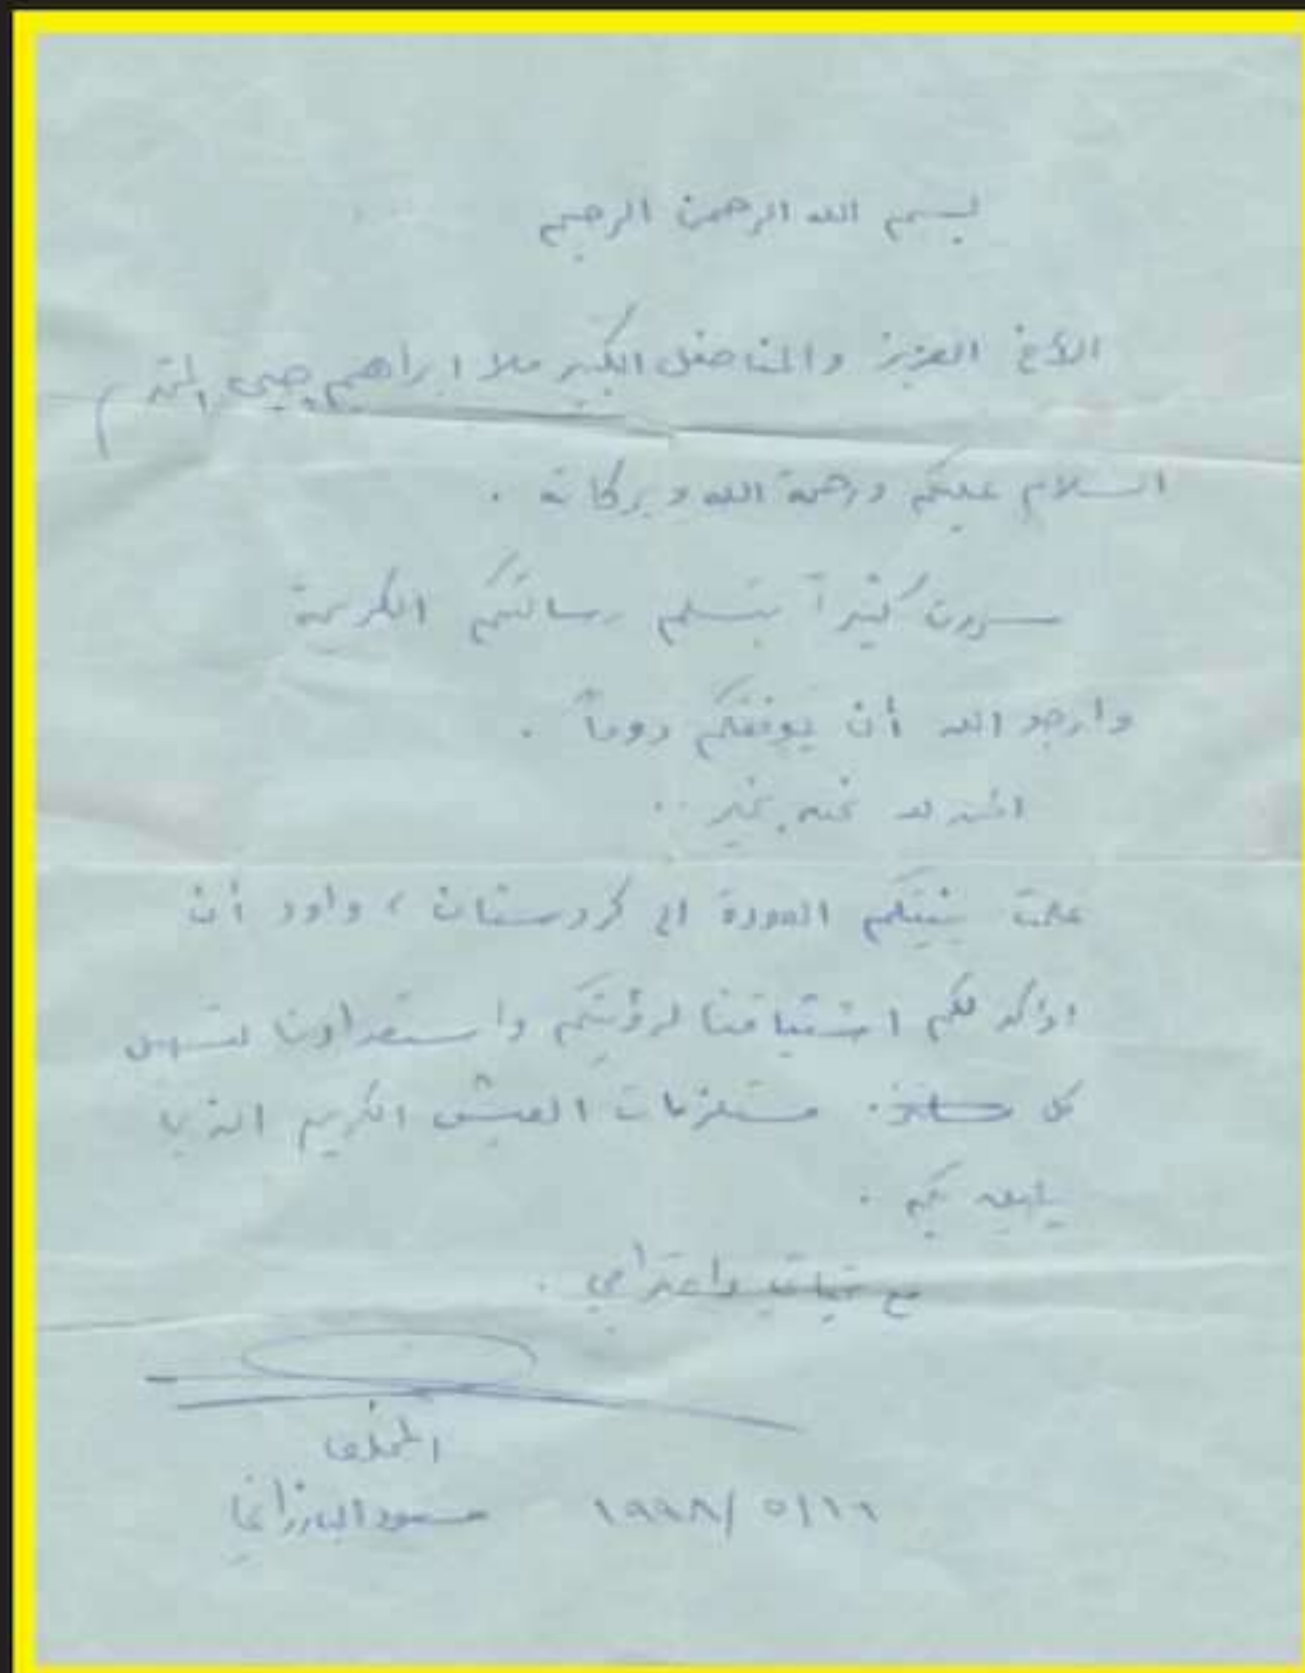 بسم الله الرحمن الرحيم
الأخ العزيز والمناضل الكبير ملا ابراهيم المحترم
السلام عليكم ورحمة الله وبركاته .
سررت كثيراً بتسلم رسالتكم الكريمة
وارجو الله أن يوفقكم دوماً .
الحمد لله نحن بخير ..
علمت بنيتكم العودة الى كردستان ، واود أن
اؤكد لكم اشتياقنا لرؤيتكم واستعدادنا لتسهيل
كل مستلزمات العيش الكريم الذي
يليق بكم .
مع تحياتي واحترامي .
المخلص
مسعود البارزاني
١٩٩٨/٥/١٦